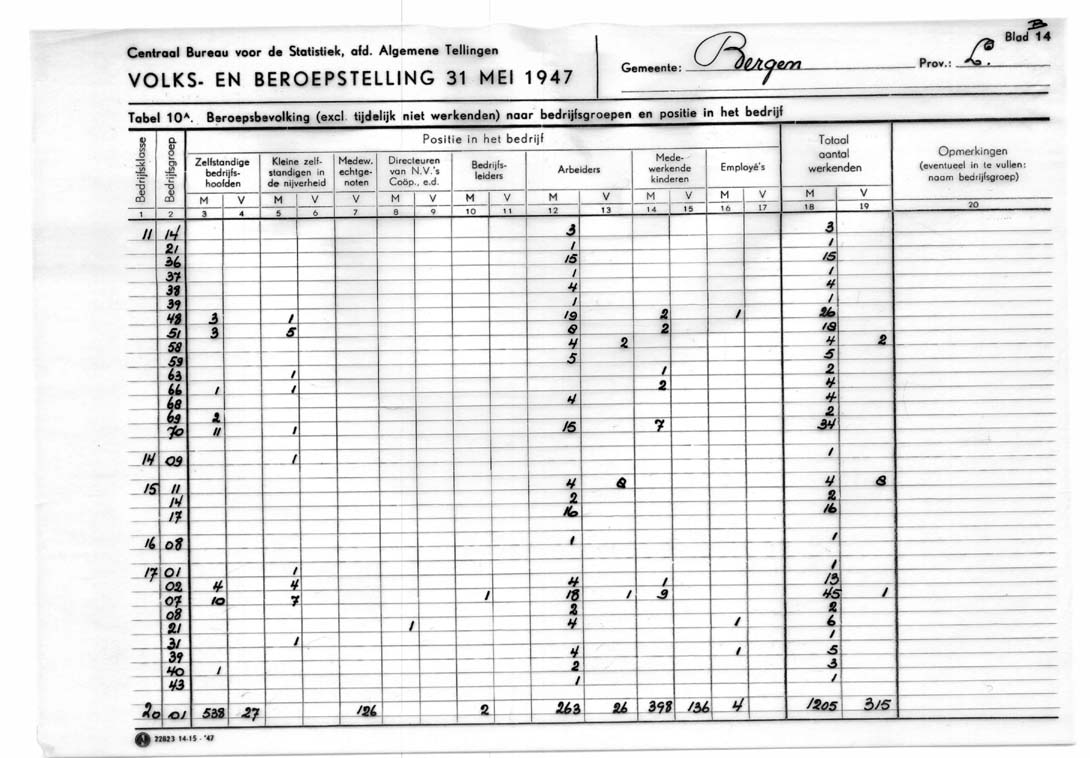 B
Blad 14
Centraal Bureau voor de Statistiek, afd. Algemene Tellingen
VOLKS- EN BEROEPSTELLING 31 MEI 1947
Gemeente: Bergen Prov.: L.
Tabel 10A. Beroepsbevolking (excl. tijdelijk niet werkenden) naar bedrijfsgroepen en positie in het bedrijf
Bedrijfsklasse
Bedrijfsgroep
Positie in het bedrijf
Zelfstandige bedrijfs-hoofden
Kleine zelf-standigen in de nijverheid
Medew. echtge-noten
Directeuren van N.V.'s Coöp., e.d.
Bedrijfs-leiders
Arbeiders
Mede-werkende kinderen
Employé's
Totaal aantal werkenden
Opmerkingen (eventueel in te vullen: naam bedrijfsgroep)
M V M V V M V M V M V M V M V M V
1 2 3 4 5 6 7 8 9 10 11 12 13 14 15 16 17 18 19 20
11 14 3 3
21 1 1
36 15 15
37 1 1
38 4 4
39 1 1
48 3 1 19 2 1 26
51 3 5 8 2 18
58 4 2 4 2
59 5 5
63 1 1 2
66 1 1 2 4
68 4 4
69 2 2
70 11 1 15 7 34
14 09 1 1
15 11 4 8 4 8
14 2 2
17 16 16
16 08 1 1
17 01 1 1
02 4 4 4 1 13
07 10 7 1 18 1 9 45 1
08 2 2
21 1 4 1 6
31 1 1
39 4 1 5
40 1 2 3
43 1 1
20 01 538 27 126 2 263 26 398 136 4 1205 315
22823 14-15 - '47